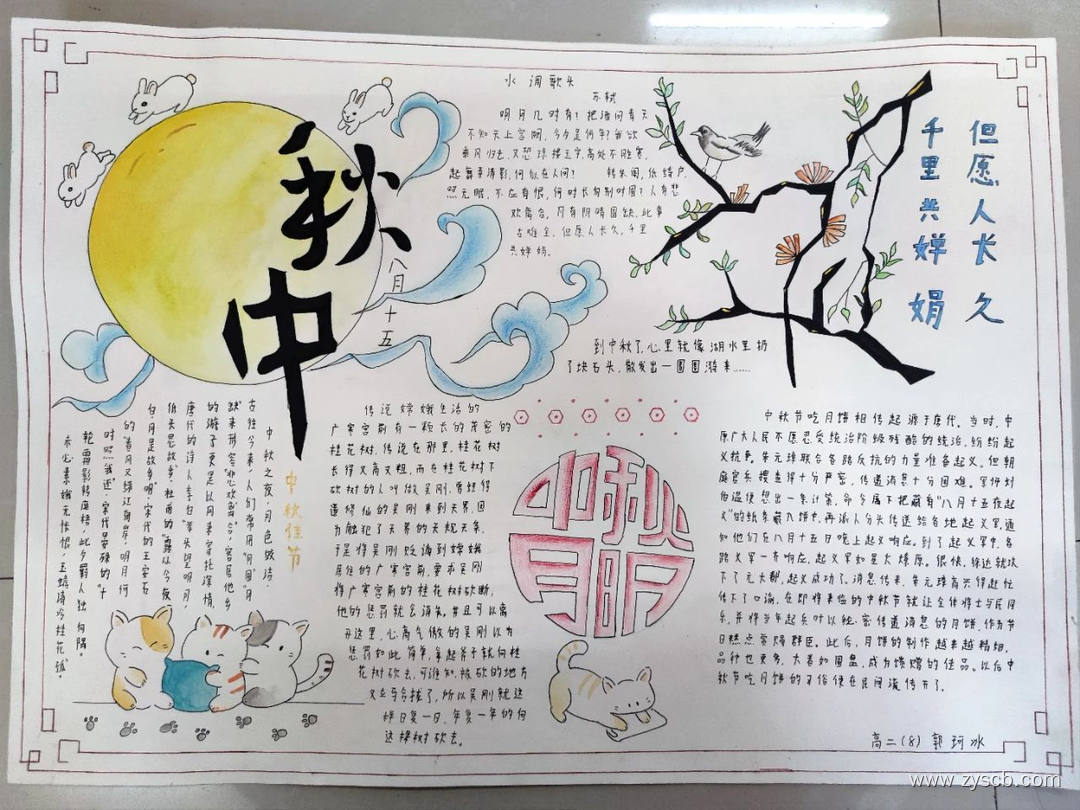 水调歌头
苏轼
明月几时有？把酒问青天
不知天上宫阙，今夕是何年？我欲
乘风归去，又恐琼楼玉宇，高处不胜寒，
起舞弄清影，何似在人间？ 转朱阁，低绮户，
照无眠，不应有恨，何时长向别时圆？人有悲
欢离合，月有阴晴圆缺，此事
古难全，但愿人长久，千里
共婵娟。
但愿人长久
千里共婵娟
中秋
八月十五
到中秋了，心里就像湖水里扔
了块石头，散发出一圈圈涟漪……
中秋佳节
中秋之夜，月色皎洁，
古往今来，人们常用"月圆""月
缺"来形容"悲欢离合"，客居他乡
的游子更是以月来寄托深情，
唐代的诗人李白"举头望明月，
低头思故乡"，杜甫的"露从今夜
白，月是故乡明"，宋代的王安石
的"春风又绿江南岸，明月何
时照我还"，宋代晏殊的"十
轮霜影转庭梧，此夕羁人独向隅。
未必素娥无怅恨，玉蟾清冷桂花孤"
传说嫦娥生活的
广寒宫前有一颗长的茂密的
桂花树，传说在那里，桂花树
长得又高又粗，而在桂花树下
砍树的人叫做吴刚，曾经得
道修仙的吴刚来到天界，因
为触犯了天界的天规天条，
于是将吴刚贬谪到嫦娥
居住的广寒宫前，要求吴刚
将广寒宫前的桂花树砍断，
他的惩罚就会消失，并且可以离
开这里，心高气傲的吴刚以为
惩罚如此简单，拿起斧子就向桂
花树砍去，可谁知，被砍的地方
又立马合拢了，所以吴刚就这
样日复一日，年复一年的向
这棵树砍去。
中秋
月明
中秋节吃月饼相传起源于唐代。当时，中
原广大人民不愿忍受统治阶级残酷的统治，纷纷起
义抗争，朱元璋联合各路反抗的力量准备起义。但朝
庭官兵搜查得十分严密，传递消息十分困难。军师刘
伯温便想出一条计策，命令属下把藏有"八月十五夜起
义"的纸条藏入饼中，再派人分头传送给各地起义军，通
知他们在八月十五日晚上起义响应。到了起义军中，各
路义军一齐响应，起义军如星火燎原。很快，徐达就攻
下了元大都，起义成功了，消息传来，朱元璋高兴得赶忙
传下口谕，在即将来临的中秋节就让全体将士与民同
乐，并将当年起兵时以秘密传递消息的月饼，作为节
日糕点赏赐群臣。此后，月饼的制作越来越精细，
品种也更多，大者如圆盘，成为馈赠的佳品。以后中
秋节吃月饼的习俗便在民间流传开了。
高二(8) 郭珂冰
www.zyscb.com